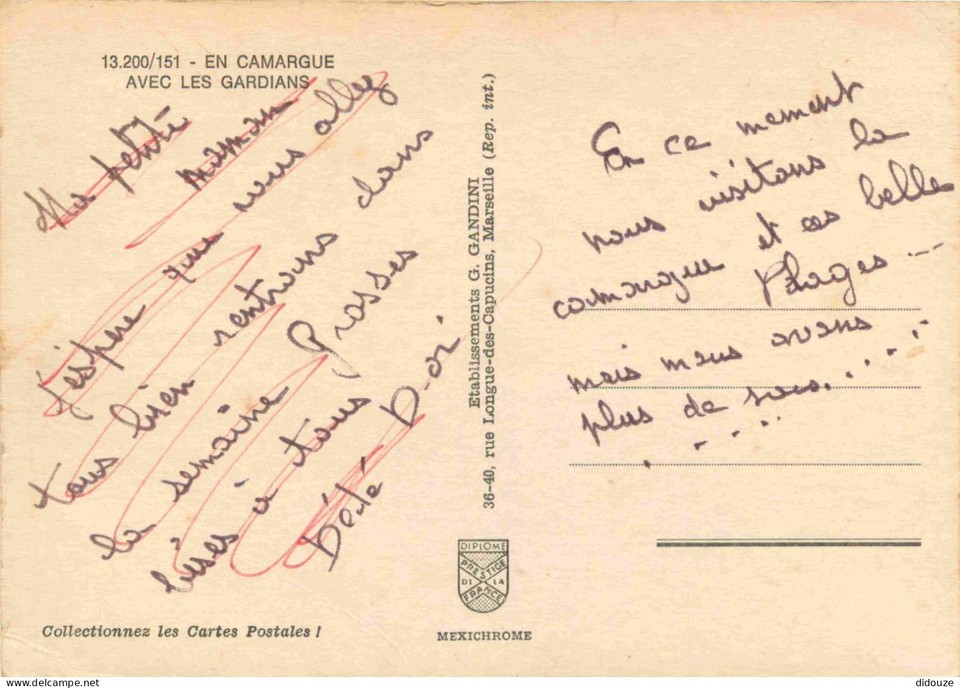 13.200/151 - EN CAMARGUE
AVEC LES GARDIANS
Ma petite maman
J'espère que vous allez
tous bien rentrons dans
la semaine Grosses
bises à tous
Dédé
Etablissements G. GANDINI
36-40, rue Longue-des-Capucins, Marseille (Rep. int.)
En ce moment
nous visitons la
camargue et ces belle
Plages --
mais nous avons
plus de sous.....
.....
DIPLOME
PRESTIGE
DE LA
FRANCE
Collectionnez les Cartes Postales !
MEXICHROME
delcampe.net
didouze